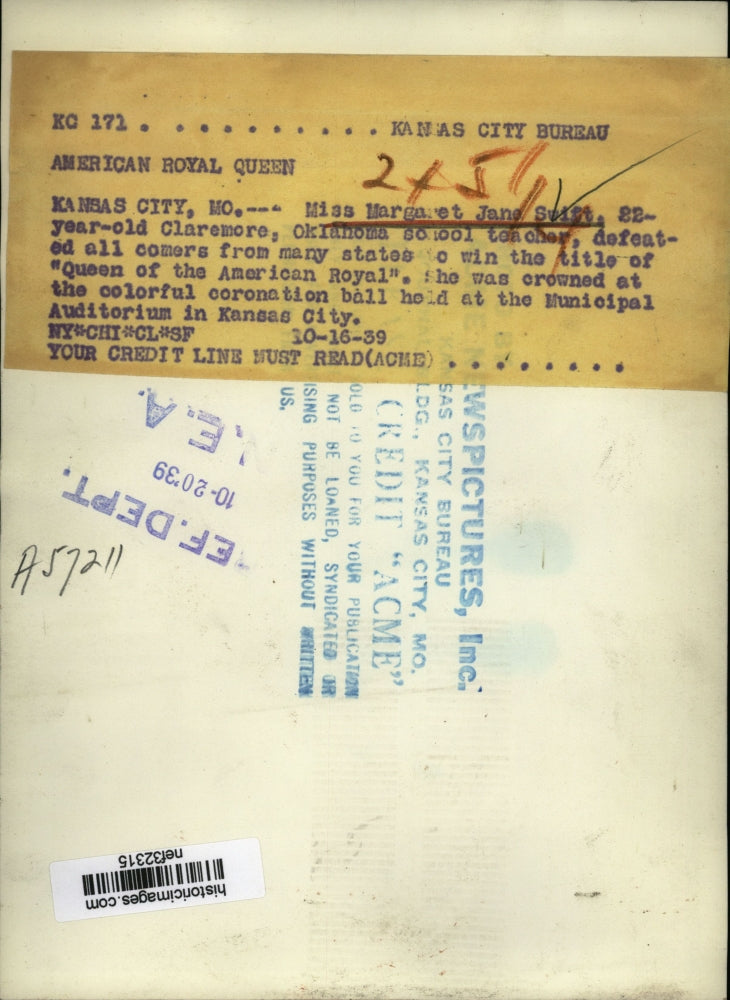 KC 171 . . . . . . . . . . . KANSAS CITY BUREAU
AMERICAN ROYAL QUEEN
2 x 5 1/4
KANSAS CITY, MO.--- Miss Margaret Jane Swift, 22-
year-old Claremore, Oklahoma school teacher, defeat-
ed all comers from many states to win the title of
"Queen of the American Royal". She was crowned at
the colorful coronation ball held at the Municipal
Auditorium in Kansas City.
NY*CHI*CL*SF 10-16-39
YOUR CREDIT LINE MUST READ(ACME) . . . . . . . .
NEWSPICTURES, Inc.
KANSAS CITY BUREAU
BLDG., KANSAS CITY, MO.
CREDIT "ACME"
SOLD TO YOU FOR YOUR PUBLICATION
NOT BE LOANED, SYNDICATED OR
ISING PURPOSES WITHOUT WRITTEN
US.
N.E.A.
10-20'39
REF. DEPT.
A57211
historicimages.com
nef32315